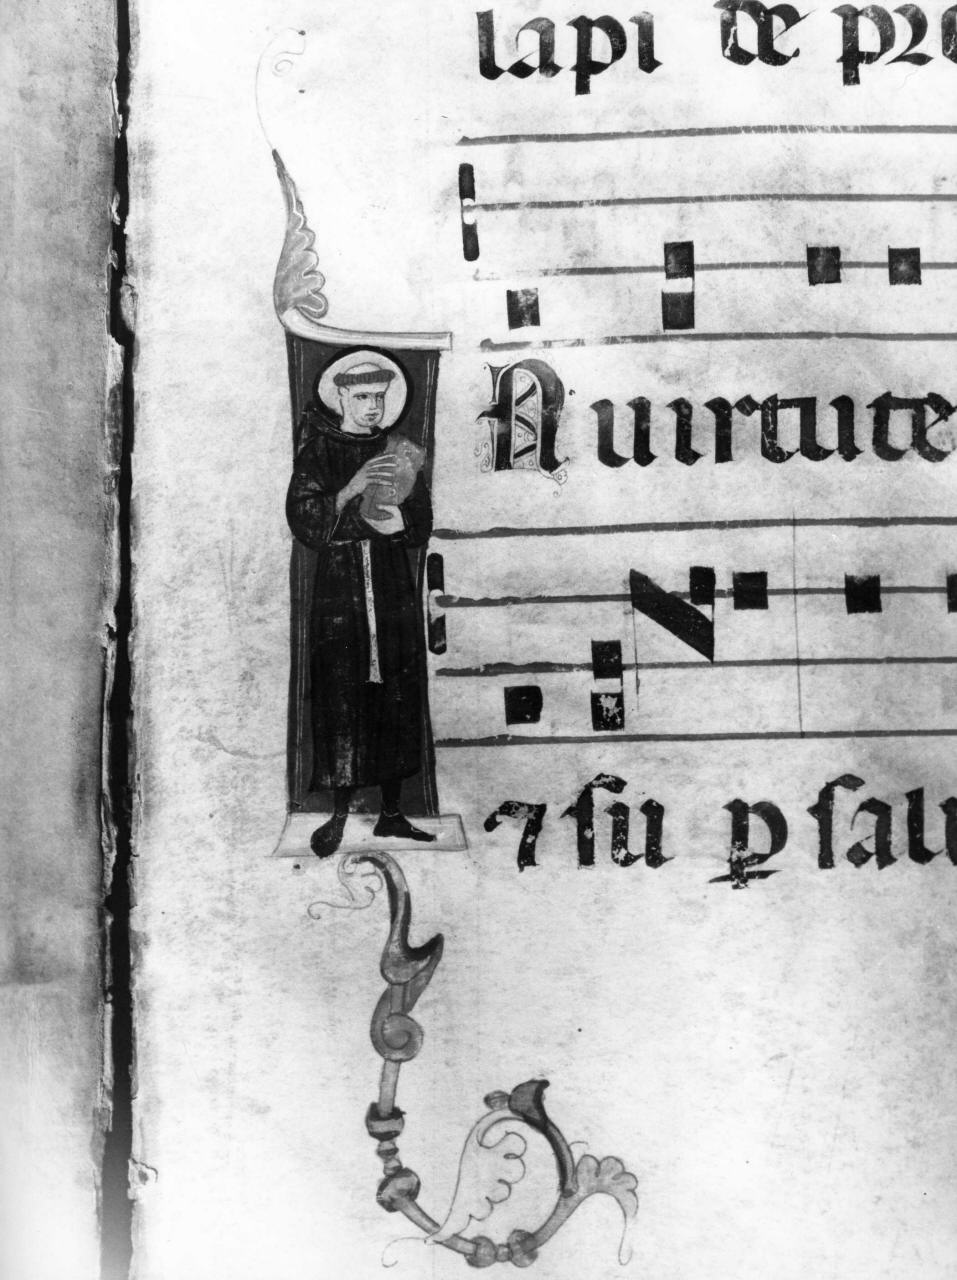 lapi de pro
In uirtute
7 su p salu